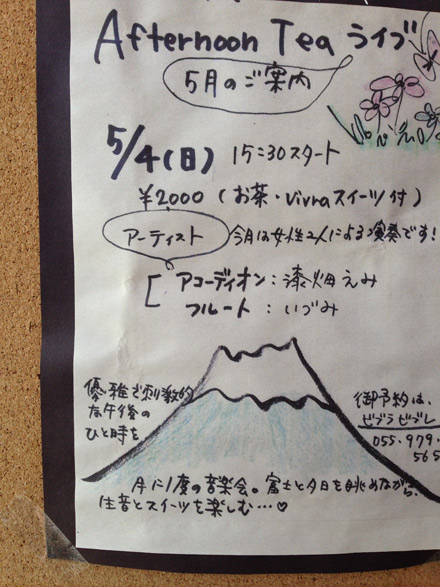 Afternoon Tea ライブ
5月のご案内
5/4(日) 15:30スタート
¥2,000 (お茶・vivraスイーツ付)
アーティスト 今月は女性2人による演奏です!
アコーディオン:漆畑えみ
フルート:いづみ
優雅で刺激的
な午後の
ひと時を
御予約は、
ビブラビブレ
055-979-
565
月に1度の音楽会。富士と夕日を眺めながら、
生音とスイーツを楽しむ…♡